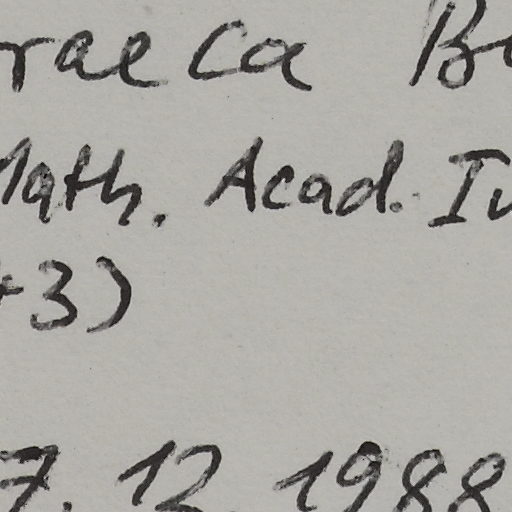 raeca B
Math. Acad. Iu
+3)
7. 12. 1988